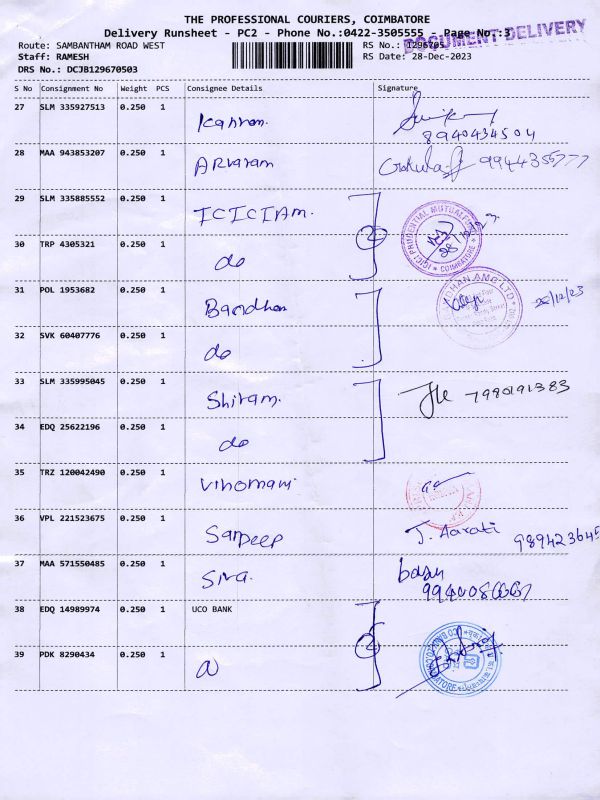 THE PROFESSIONAL COURIERS, COIMBATORE
Delivery Runsheet - PC2 - Phone No.:0422-3505555 - Page No.:3
DOCUMENT DELIVERY
Route: SAMBANTHAM ROAD WEST RS No.: 1296705
Staff: RAMESH RS Date: 28-Dec-2023
DRS No.: DCJB129670503
S No Consignment No Weight PCS Consignee Details Signature
27 SLM 335927513 0.250 1 Kannan.
8940434504
28 MAA 943853207 0.250 1
29 SLM 335885552 0.250 1 ICICIAM.
ICICI PRUDENTIAL MUTUAL FUND
COIMBATORE
30 TRP 4305321 0.250 1 do
2
31 POL 1953682 0.250 1 Bandhan
BANDHAN AMC LTD
32 SVK 60407776 0.250 1 do
33 SLM 335995045 0.250 1 Shiram.
7980191383
34 EDQ 25622196 0.250 1 do
35 TRZ 120042490 0.250 1
36 VPL 221523675 0.250 1 Sanpeep J. Aarati
989423645
37 MAA 571550485 0.250 1 Siva.
38 EDQ 14989974 0.250 1 UCO BANK
39 PDK 8290434 0.250 1
2